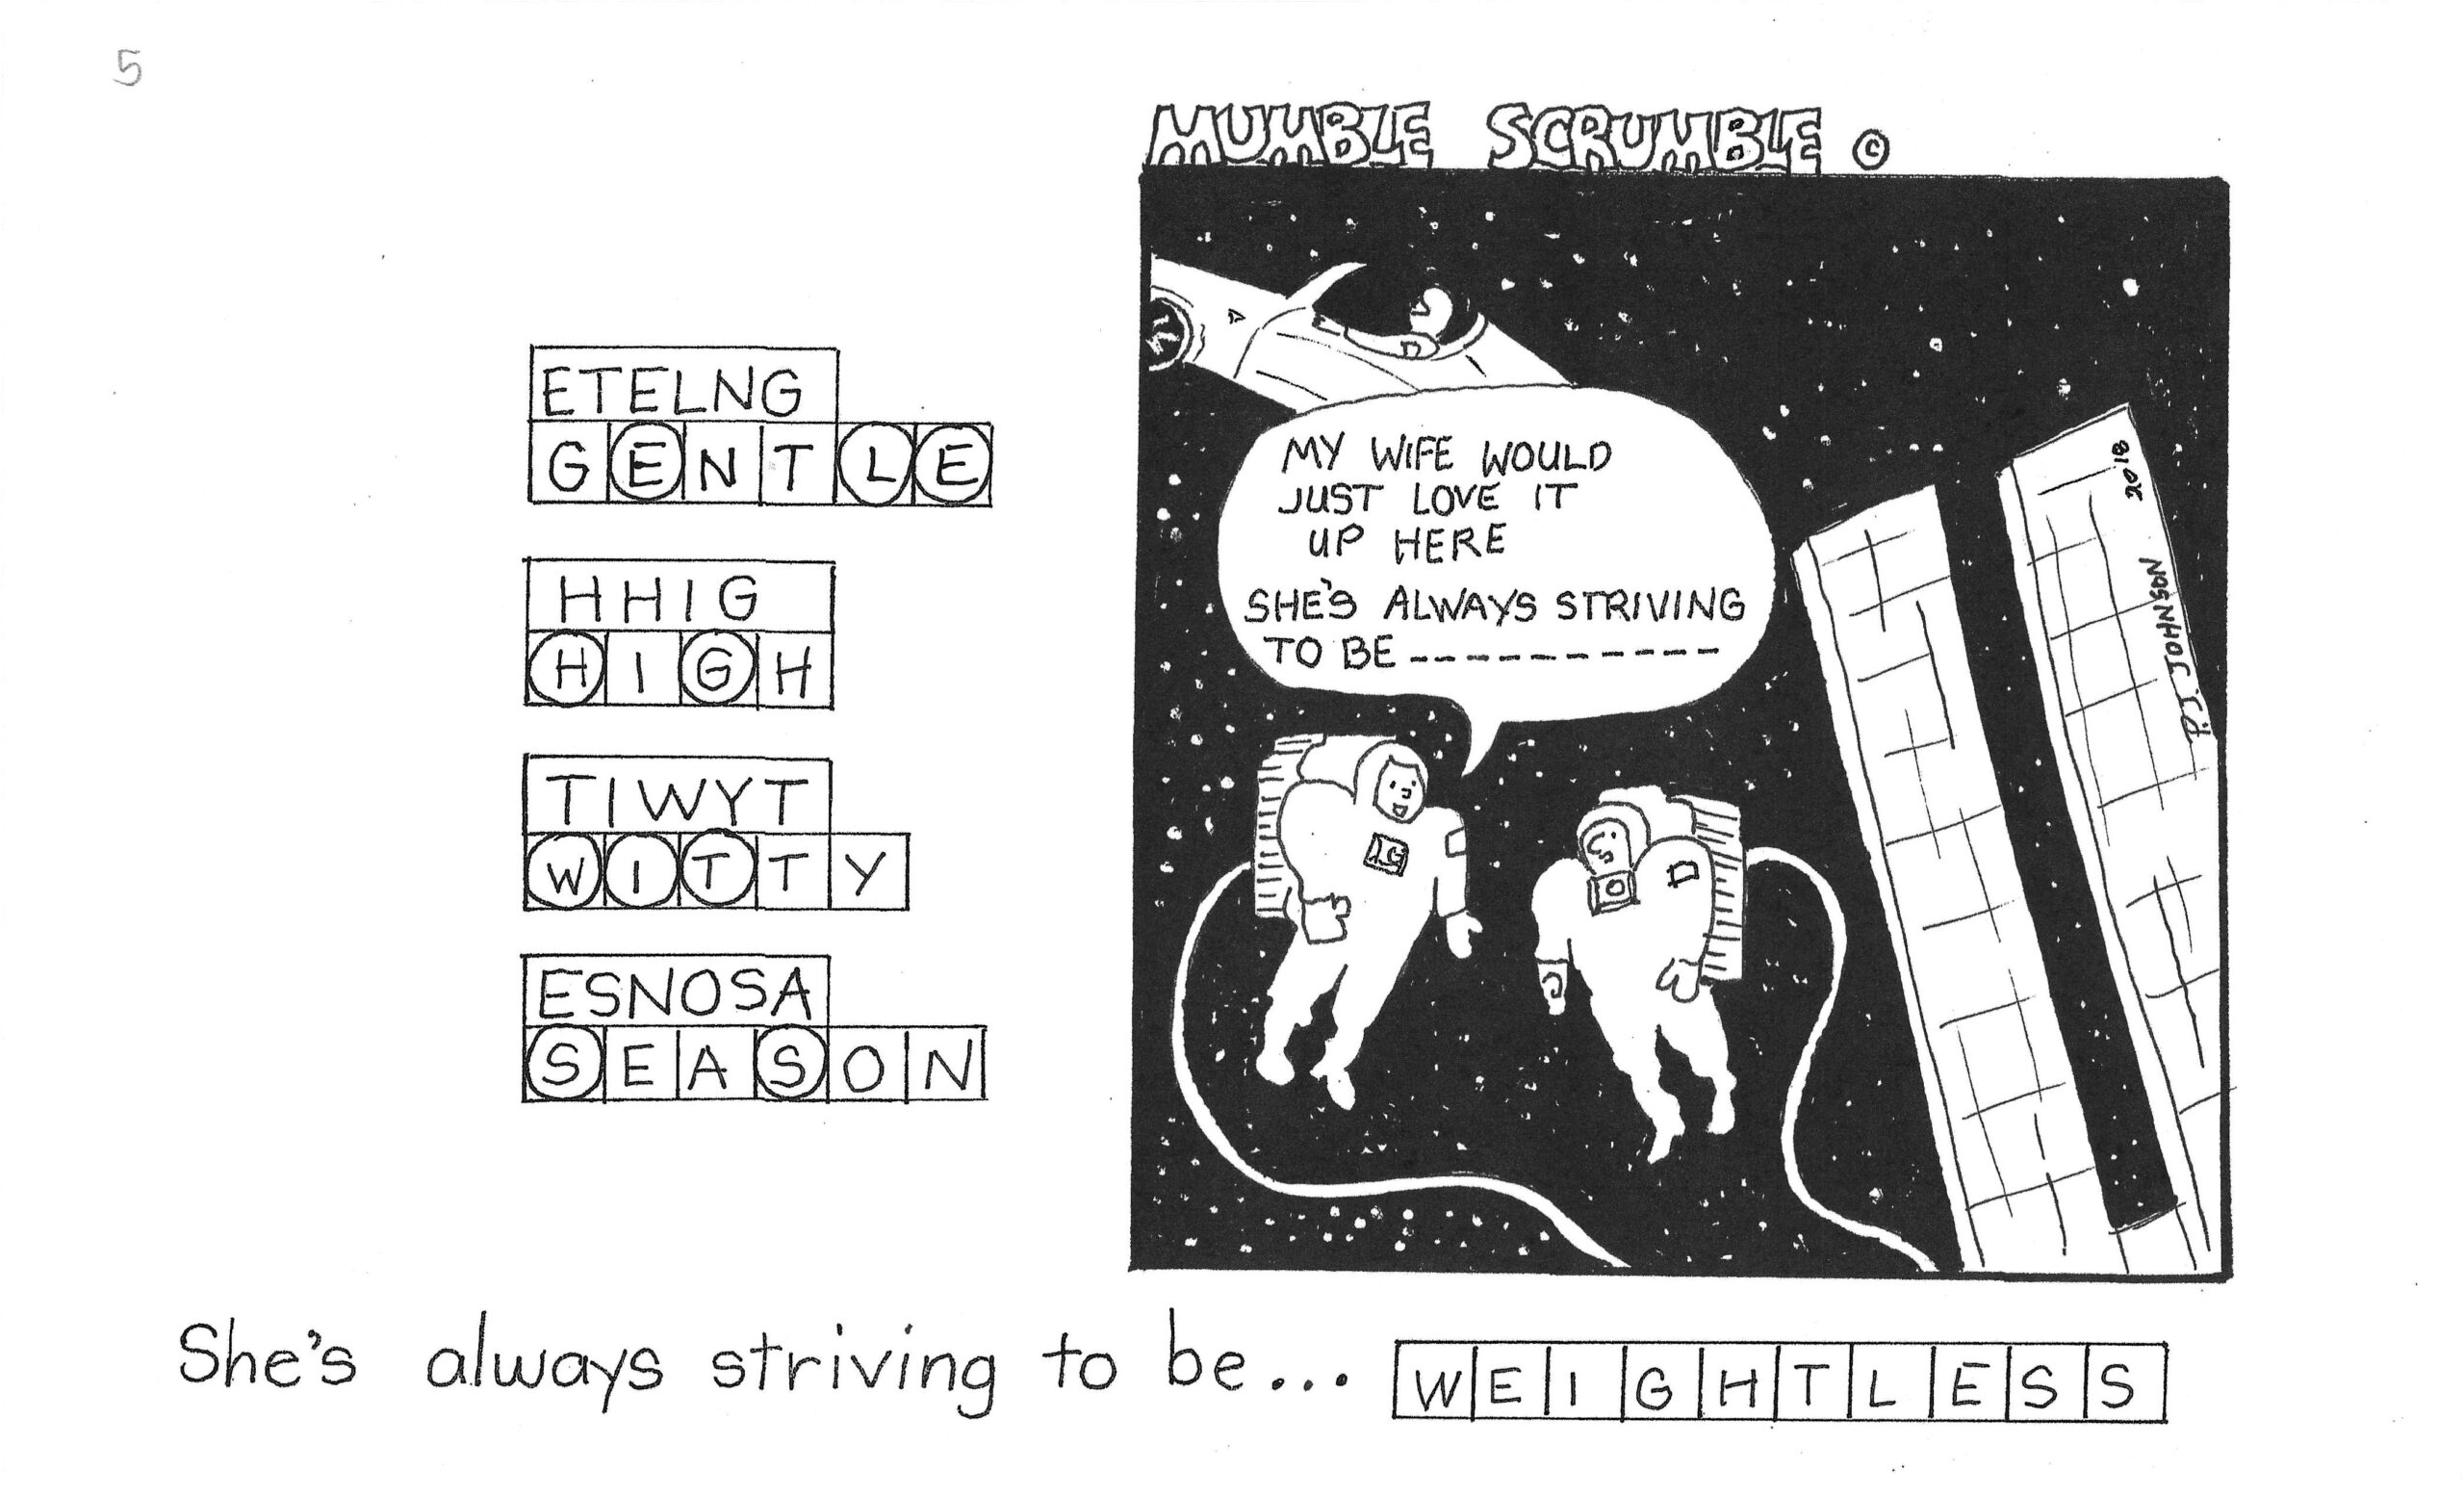 5
MUMBLE SCRUMBLE ©
ETELNG
GENTLE
HHIG
HIGH
TIWYT
WITTY
ESNOSA
SEASON
MY WIFE WOULD
JUST LOVE IT
UP HERE
SHE'S ALWAYS STRIVING
TO BE -----------
2018
P.J. JOHNSON
She's always striving to be... WEIGHTLESS